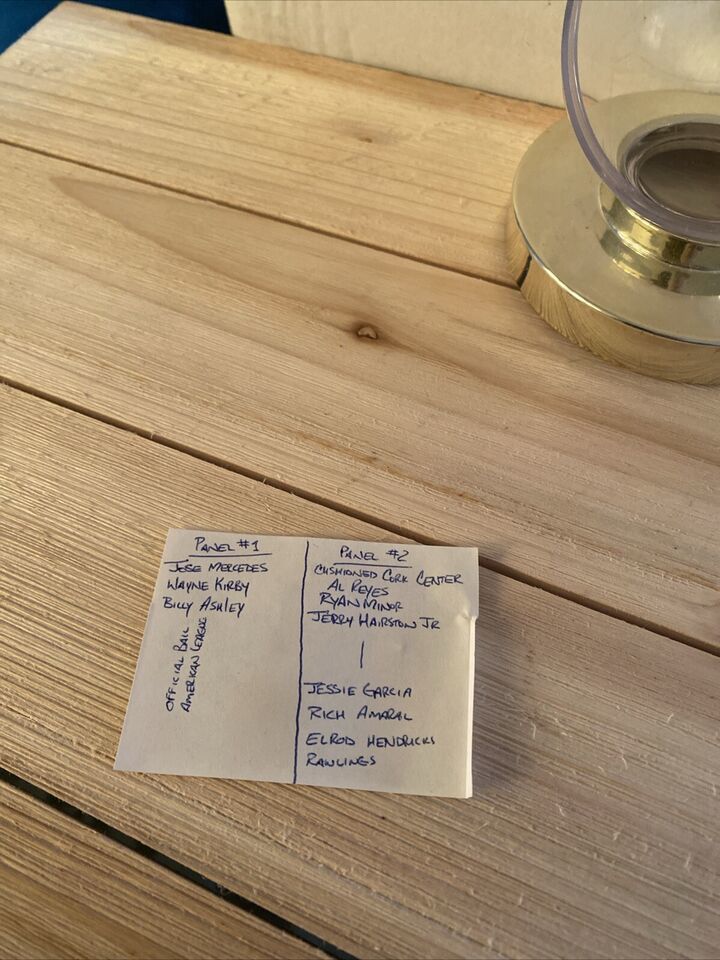 PANEL #1
JOSE MERCEDES
WAYNE KIRBY
BILLY ASHLEY
OFFICIAL BALL
AMERICAN LEAGUE
PANEL #2
CUSHIONED CORK CENTER
AL REYES
RYAN MINOR
JERRY HAIRSTON JR
JESSIE GARCIA
RICH AMARAL
ELROD HENDRICKS
RAWLINGS